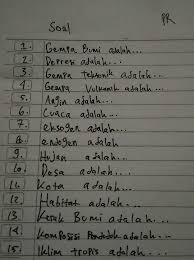 PR
Soal
1. Gempa Bumi adalah...
2. Depresi adalah...
3. Gempa Tektonik adalah...
4. Gempa Vulkanik adalah...
5. Angin adalah...
6. Cuaca adalah...
7. eksogen adalah...
8. endogen adalah
9. Hujan adalah...
10. Desa adalah...
11. Kota adalah...
12. Habitat adalah...
13. Kerak Bumi adalah...
14. Komposisi Penduduk adalah...
15. Iklim tropis adalah...